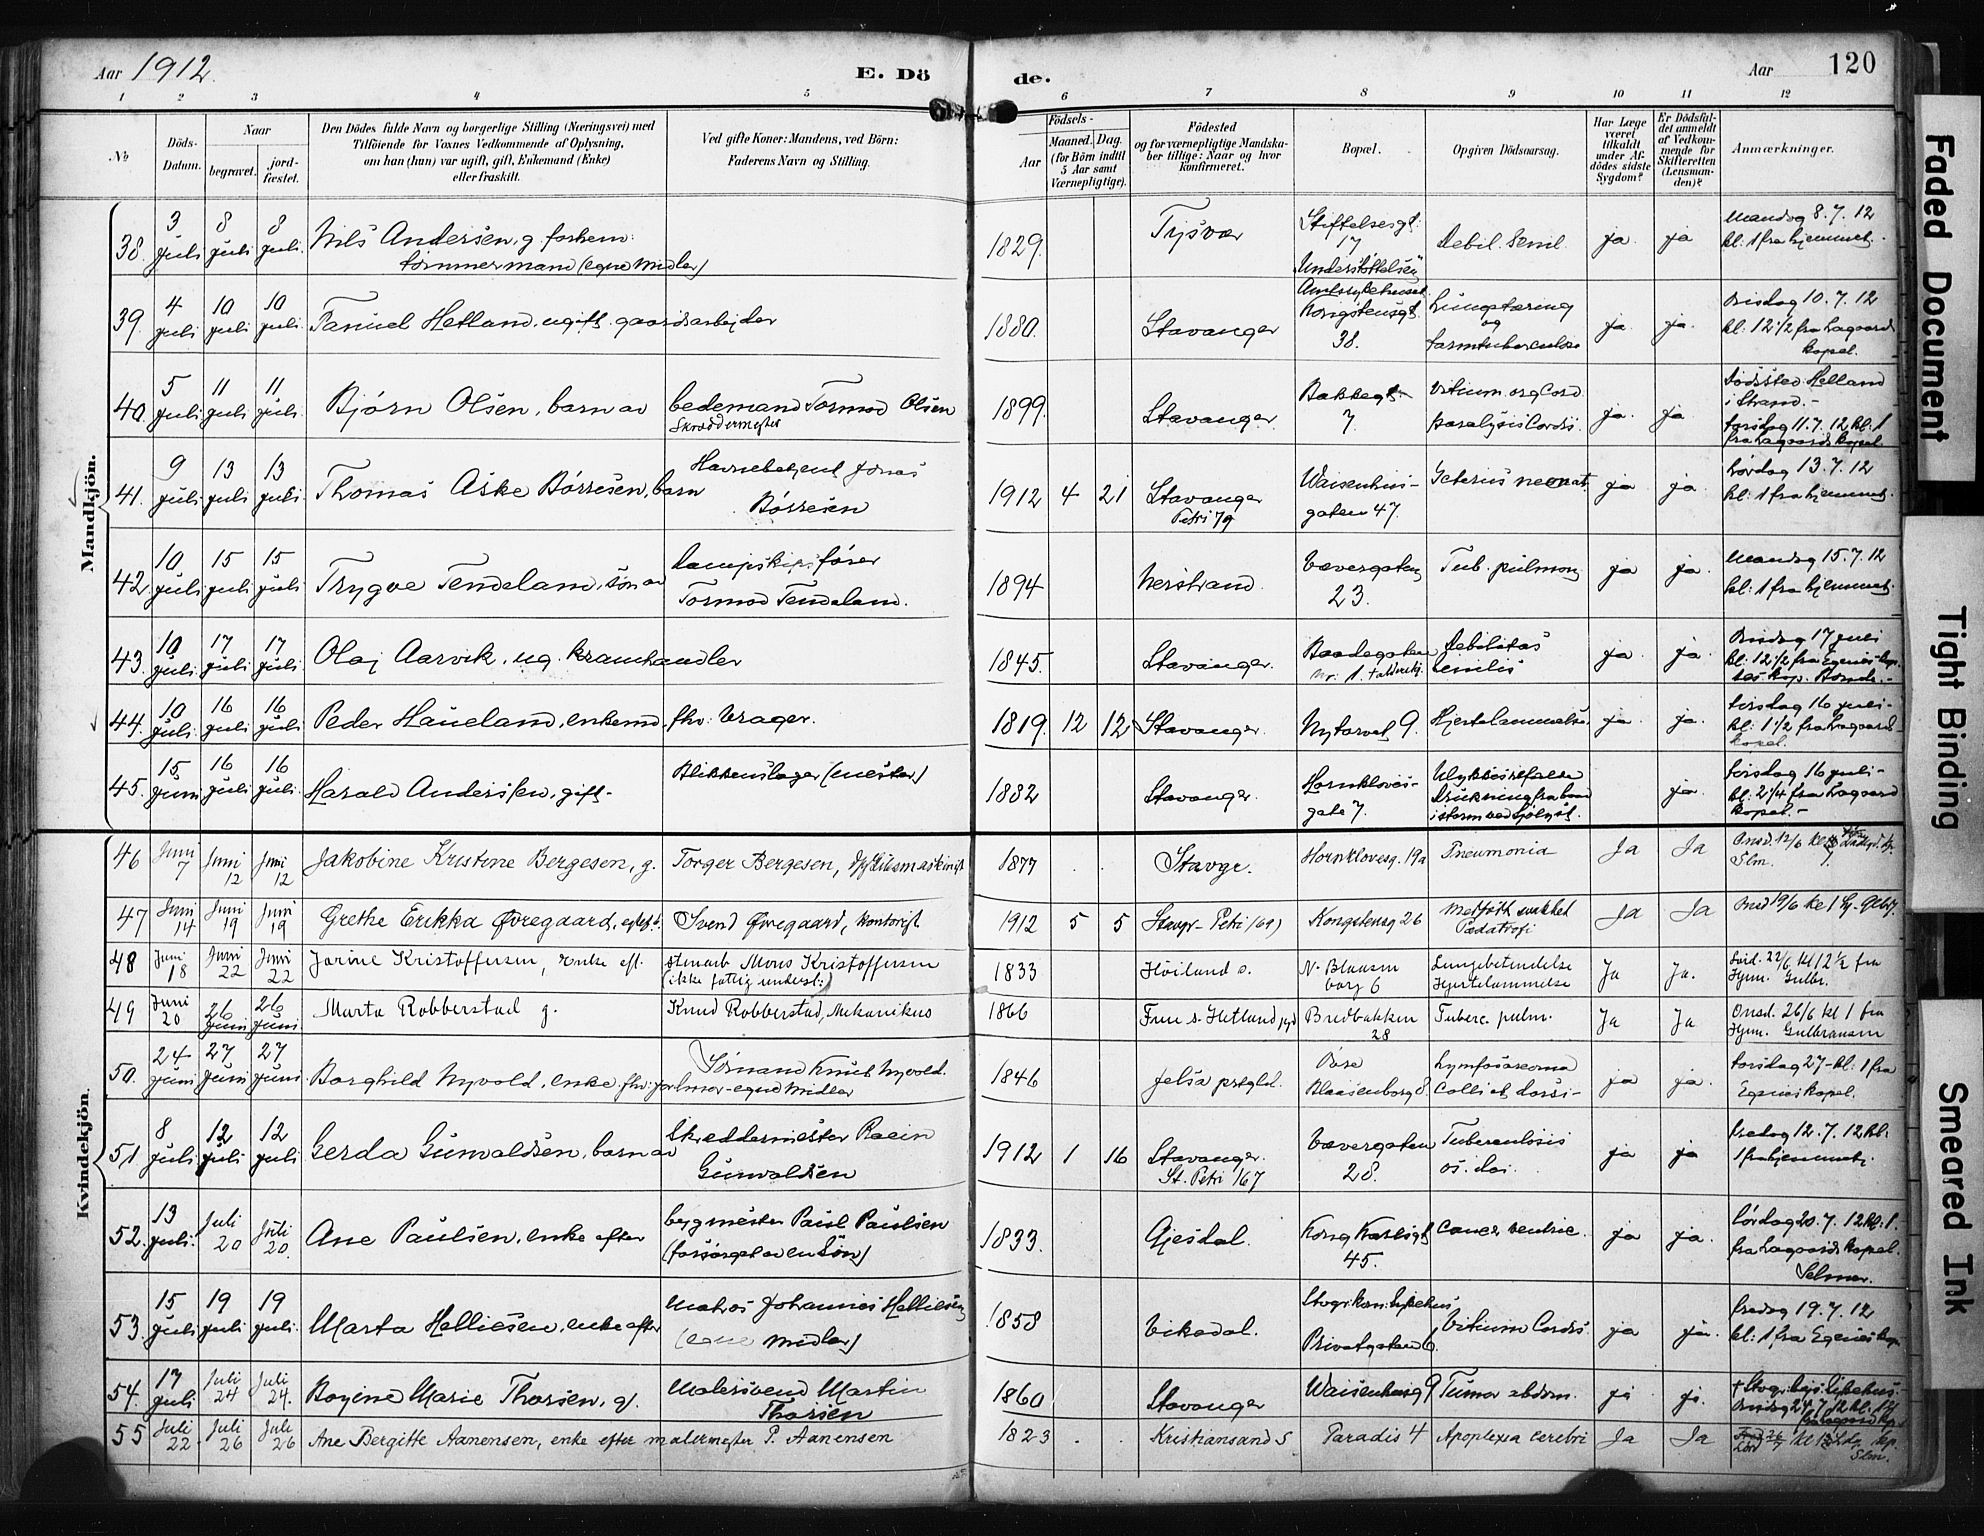 Aar 1912.
E. Dö
de.
Aar
120
1 2 3 4 5 6 7 8 9 10 11 12
№
Döds-Datum.
Naar
begravet.
jord-fæstet.
Den Dödes fulde Navn og borgerlige Stilling (Næringsvei) med
Tilföiende for Voxnes Vedkommende af Oplysning,
om han (hun) var ugift, gift, Enkemand (Enke)
eller fraskilt.
Ved gifte Koner: Mandens, ved Börn:
Faderens Navn og Stilling.
Födsels-
Aar
Maaned. Dag.
(for Börn indtil
5 Aar samt
Værnepligtige).
Födested
og for værnepligtige Mandska-
ber tillige: Naar og hvor
konfirmeret.
Bopæl.
Opgiven Dödsaarsag.
Har Læge
været
tilkaldt
under Af-
dödes sidste
Sygdom?
Er Dödsfal-
det anmeldt
af Vedkom-
mende for
Skifteretten
(Lensman-
den)?
Anmærkninger.
Mandkjön.
38. 3 juli 8 juli 8 juli. Nils Andersen, g. forhem: tømmermand (egne midler) 1829. Tysvær Stiftelsesgt: 17 Understøttelsen Debil. Senil. ja. ja Mandag 8.7.12 kl: 1 fra hjemmet.
39. 4 juli 10 juli 10 juli. Fanuel Hetland, ugift. gaardsarbejder 1880. Stavanger Amtssykehuset Kongstensgt. 38. Lungetæring og tarmtuberculose ja. ja. Onsdag 10.7.12 kl: 12 1/2 fra Lagaards kapel.
40. 5 juli 11 juli 11 juli. Bjørn Olsen, barn av bedemand Tormod Olsen Skræddermester 1899. Stavanger. Bakkegt. 7. Vitium org Cord. paralysis Cordis. ja. ja Dødssted Helland i Strand.- torsdag 11.7.12 kl: 1 fra Lagaards kapel.
41. 9 juli 13 juli 13 juli. Thomas Aske Børresen, barn Havnebetjent Jonas Børresen 1912 4 21 Stavanger Petri 79 Waisenhus-gaten 47. Icterus neonat. ja ja. Lørdag 13.7.12 kl: 1 fra hjemmet.
42. 10 juli 15 juli 15 juli. Trygve Tendeland, søn av dampskipsfører Tormod Tendeland. 1894 Nerstrand. Vævergaten 23. Tub. pulmon ja ja. Mandag 15.7.12 kl: 1 fra hjemmet.
43. 10 juli 17 juli 17 juli. Olaj Aarvik, ug. kramhandler 1845. Stavanger. Baadegaten nr: 1. Debilitas senilis ja. ja. Onsdag 17 juli kl: 12 1/2 fra Egenes
44. 10 juli. 16 juli 16 juli. Peder Haueland, enkemd, fhv: Vrager. 1819. 12 12 Stavanger. Nytorvet 9. Hjertelammelse. ja. ja. tirsdag 16 juli- kl: 1 1/2 fra Lagaards kapel.
45. 15 juni 16 juli 16 juli. Harald Andersen, gift- Blikkenslager (mester) 1882 Stavanger. Hornkloves-gate 7. Ulykkestilfælde Drukning fra baad i storm ved Sjølyst. ja. tirsdag 16 juli- kl: 2 1/4 fra Lagaard kapel.-
Kvindekjön.
46 Juni 7 Juni 12 Juni 12 Jakobine Kristine Bergesen, g. Torger Bergesen, 1877 Stavgr. Hornklovesg. 19a Pneumonia Ja Ja Onsd. 12/6 Slm.
47 Juni 14 Juni 19 Juni 19 Grethe Erikka Øvregaard, Svend Øvregaard, kontorist 1912 5 5 Stavgr- Petri (69) Kongstensg 26 Medfødt svakhet Pædatrofi Ja Ja Onsd 19/6 kl 1
48 Juni 18 Juni 22 Juni 22 Jorine Kristoffersen, enke eft. stenarb Mons Kristoffersen (ikke fattig underst:) 1833 Høiland s. N. Blaasenborg 6 Lungebetendelse Hjertelammelse Ja Ja. 22/6 kl 12 1/2 fra Hjem. Gulbr.
49 Juni 20 26 Juni 26 Juni Marta Robberstad g. Knud Robberstad, Mekanikus 1866 Frue s. Hetland pgd Bredbakken 28 Tuberc. pulm. Ja Ja Onsd. 26/6 kl 1 fra Hjem. Gulbransen
50. 24 juni 27 juni 27 juni. Borghild Nyvold, enke, fhv: jordmor-egne midler Sømand Knut Nyvold. 1846 Jelsa prstgld. Øvre Blaasenborg 8. Lymfosarcoma Colli et dorsi- ja ja. torsdag 27- kl: 1 fra Egenes kapel.
51 8 juli 12 juli 12 juli Gerda Gunvaldsen, barn av Skreddermester Rasin Gunvaldsen 1912 1 16 Stavanger. St. Petri 167 Vævergaten 28. Tuberculosis ja ja fredag 12.7.12 kl: 1 fra hjemmet.
52. 13 juli. Juli 20 Juli 20. Ane Paulsen, enke efter bygmester Paul Paulsen (forsørget av en søn) 1833. Gjesdal. Kong Karlsgt 45. Cancer ventric. ja ja. Lørdag 20.7.12 kl: 1. fra Lagaards kapel. Selmer.
53. 15 juli 19 juli 19 juli. Marta Helliesen, enke efter Matros Johannes Helliesen (egne midler) 1858 Vikedal. Stvgr. kom. sykehus Privatgaten 6. Vitium Cordis. ja ja. fredag 19.7.12 kl: 1 fra Egenes kap.
54. 17 juli Juli 24 Juli 24. Boyine Marie Thorsen, g. Malersvend Martin Thorsen 1860 Stavanger Waisenhusg 9 Tumor abdom. ja ja. Onsdag 24.7.12 kl:
55 Juli 22. Juli 26 Juli 26 Ane Bergitte Aanensen, enke efter malermester P. Aanensen 1823 Kristiansand S Paradis 4 Apoplexia cerebri Ja Ja Slm.
Faded Document
Tight Binding
Smeared Ink